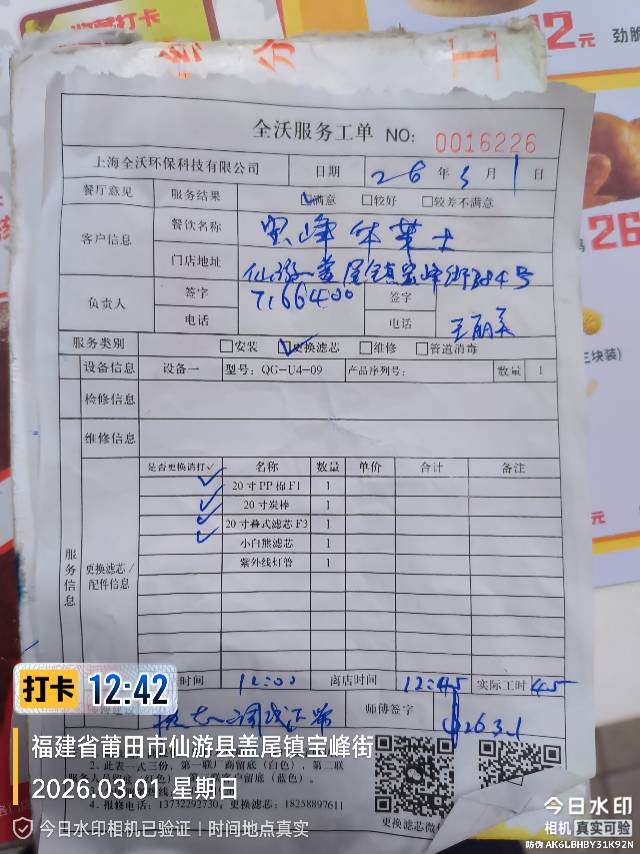 分
工
2元
劲脆
26
三块装)
元
全沃服务工单 NO: 0016226
上海全沃环保科技有限公司 日期 26年3月1日
餐厅意见 服务结果 ☑满意 □较好 □较差不满意
客户信息 餐饮名称 宝峰华莱士
门店地址 仙游盖尾镇宝峰街384号
负责人 签字 7166400 签字
电话 电话 王丽美
服务类别 □安装 ☑更换滤芯 □维修 □管道消毒
设备信息 设备一 型号: QG-U4-09 产品序列号: 数量 1
检修信息
维修信息
服务信息
更换滤芯/配件信息
是否更换请打✓ 名称 数量 单价 合计 备注
✓ 20寸PP棉F1 1
✓ 20寸炭棒 1
✓ 20寸叠式滤芯F3 1
✓ 小白熊滤芯 1
紫外线灯管 1
时间 12:00 离店时间 12:45 实际工时 45
师傅签字 2026.3.1
打卡 12:42
福建省莆田市仙游县盖尾镇宝峰街
2. 此表一式三份,第一联厂商留底(白色),第二联
2026.03.01 星期日
4. 报修电话: 13732292730, 更换滤芯: 18258897611
更换滤芯微
今日水印相机已验证 | 时间地点真实
今日水印
相机 真实可验
防伪 AK6LBHBY31K92N